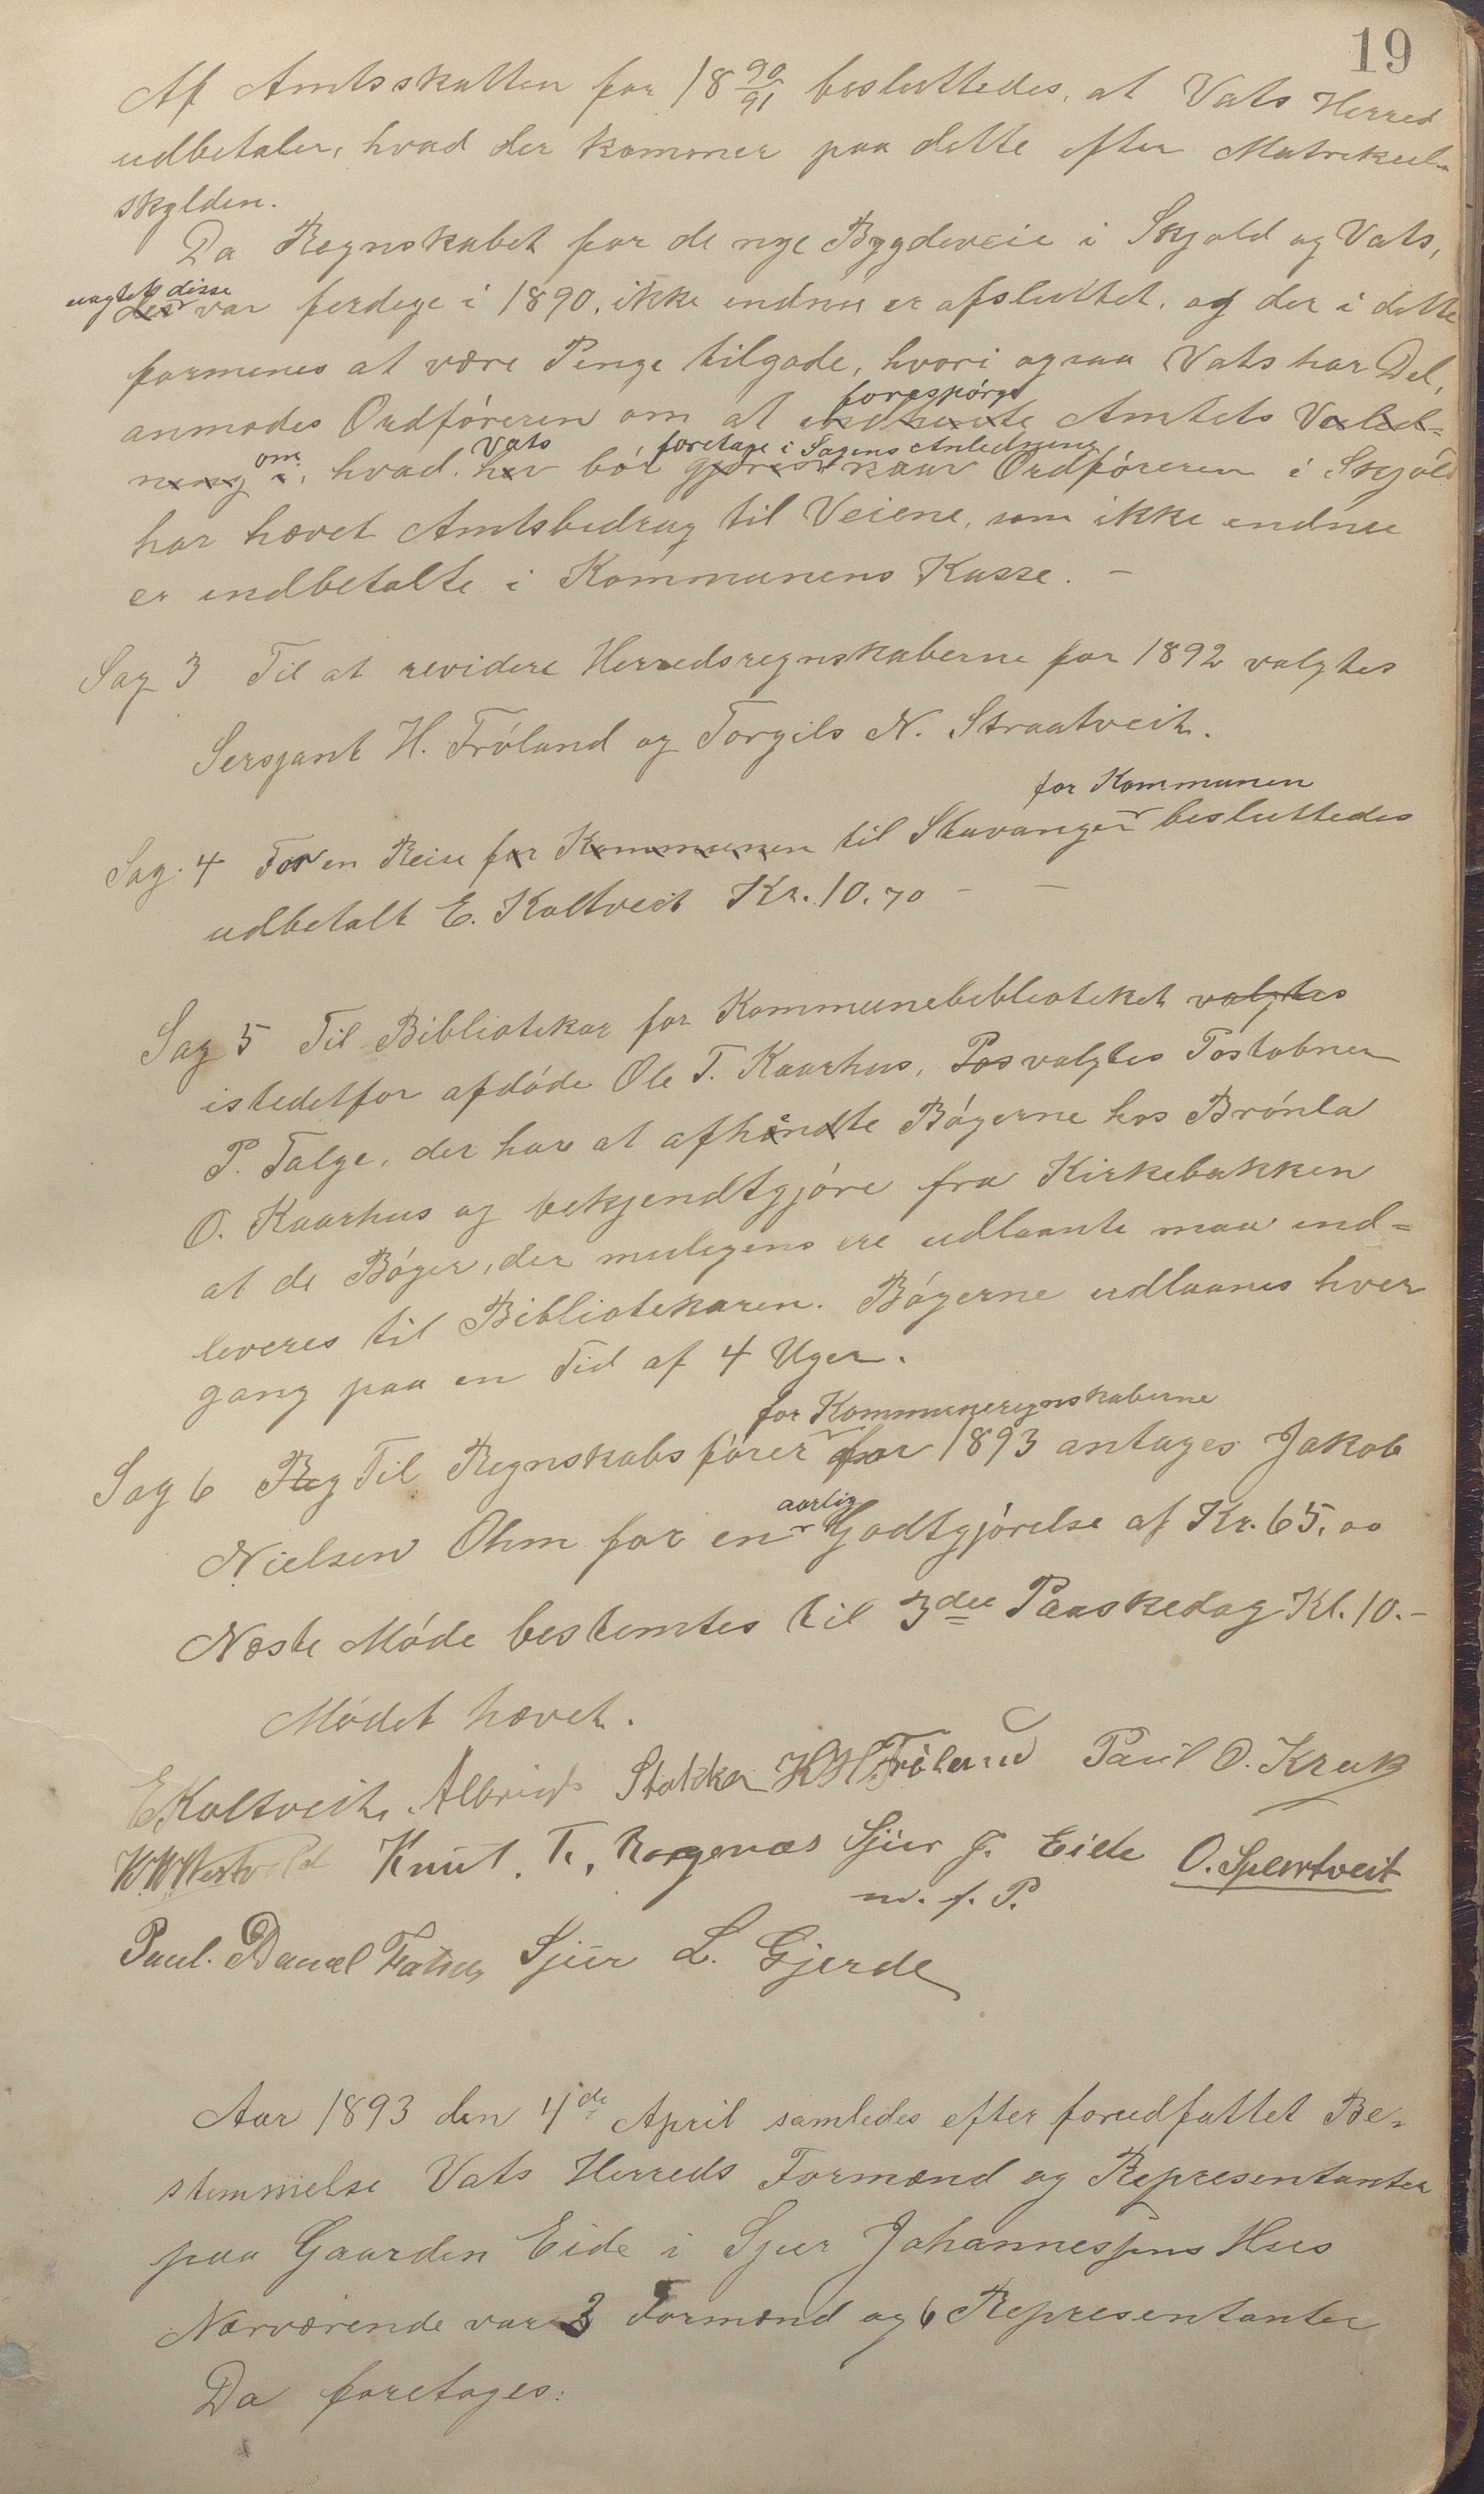 19
Af Amtsskatten for 18 90/91 besluttedes, at Vats Herred
udbetaler, hvad der kommer paa dette efter Matrikul-
skylden.
Da Regnskabet for de nye Bygdeveie i Skjold og Vats,
uagtet disse
der var ferdige i 1890, ikke endnu er afsluttet, og der i dette
formenes at være Penge tilgode, hvori ogsaa Vats har Del,
forespörge
anmodes Ordföreren om at indhente Amtets Veiled-
om Vats foretage i Sagens Anledning
ning i, hvad her bör gjøres naar Ordföreren i Skjold
har hævet Amtsbidrag til Veiene, som ikke endnu
er indbetalte i Kommunens Kasse. –
Sag 3 Til at revidere Herredsregnskaberne for 1892 valgtes
Sersjant H. Fröland og Torgils N. Straatveit.
for Kommunen
Sag. 4 For en Reise for Kommunen til Stavanger besluttedes
udbetalt E. Kaltveit Kr. 10.70 – –
Sag 5 Til Bibliotekar for Kommunebiblioteket valgtes
istedetfor afdöde Ole T. Kaarhus, Pos valgtes Postobner
P. Falge, der har at afhændte Bögerne hos Brönla
O. Kaarhus og bekjendtgjöre fra Kirkebakken
at de Böger, der muligens ere udlaante maa ind=
leveres til Bibliotekaren. Bögerne udlaanes hver
gang paa en Tid af 4 Uger.
for Kommuneregnskaberne
Sag 6 Reg Til Regnskabsförer for 1893 antages Jakob
aarlig
Nielsen Ohm for en Godtgjörelse af Kr. 65.00
Næste Möde bestemtes til 3die Paaskedag Kl. 10. –
Mödet hævet.
E Kaltveit, Albrigt Stakka H H Fröland Paul O. Krak
Knut. T. Borgenæs Sjur J. Eide O. Spertveit
m. f. P.
Paul. Danæl Sjur L. Gjerde
Aar 1893 den 4de April samledes efter forudfattet Be-
stemmelse Vats Herreds Formænd og Representanter
paa Gaarden Eide i Sjur Johannessens Hus
Nærværende var 3 Formænd og 6 Representanter
Da foretoges: